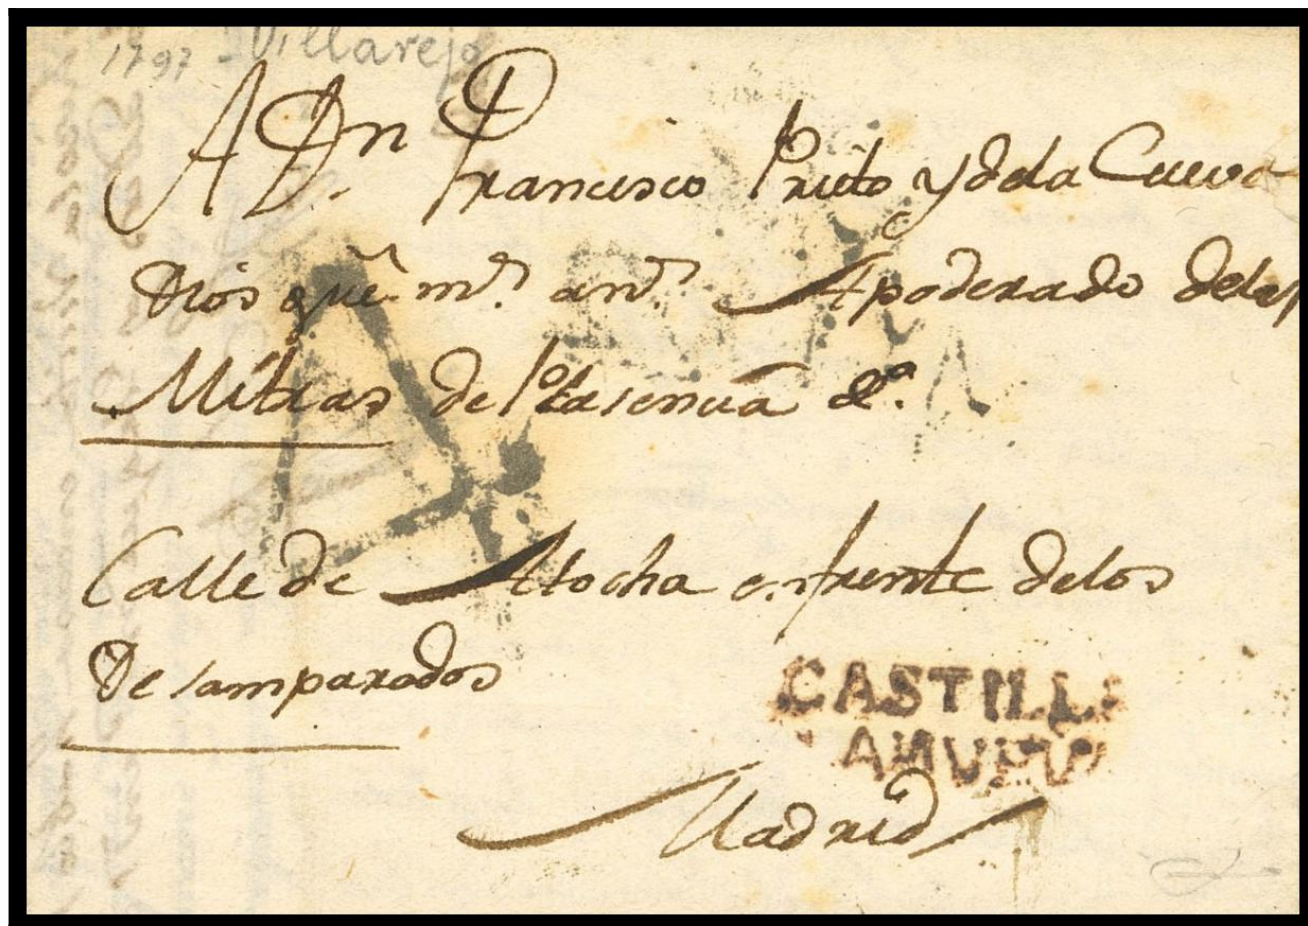 1797 - Villarejo
A Dn. Francisco Prieto y de la Cueva
Dios que m.s an.s Apoderado de las
Mitras de Plasencia &a.
Calle de Atocha enfrente de los
Desamparados
CASTILLA
LANVEVA
Madrid